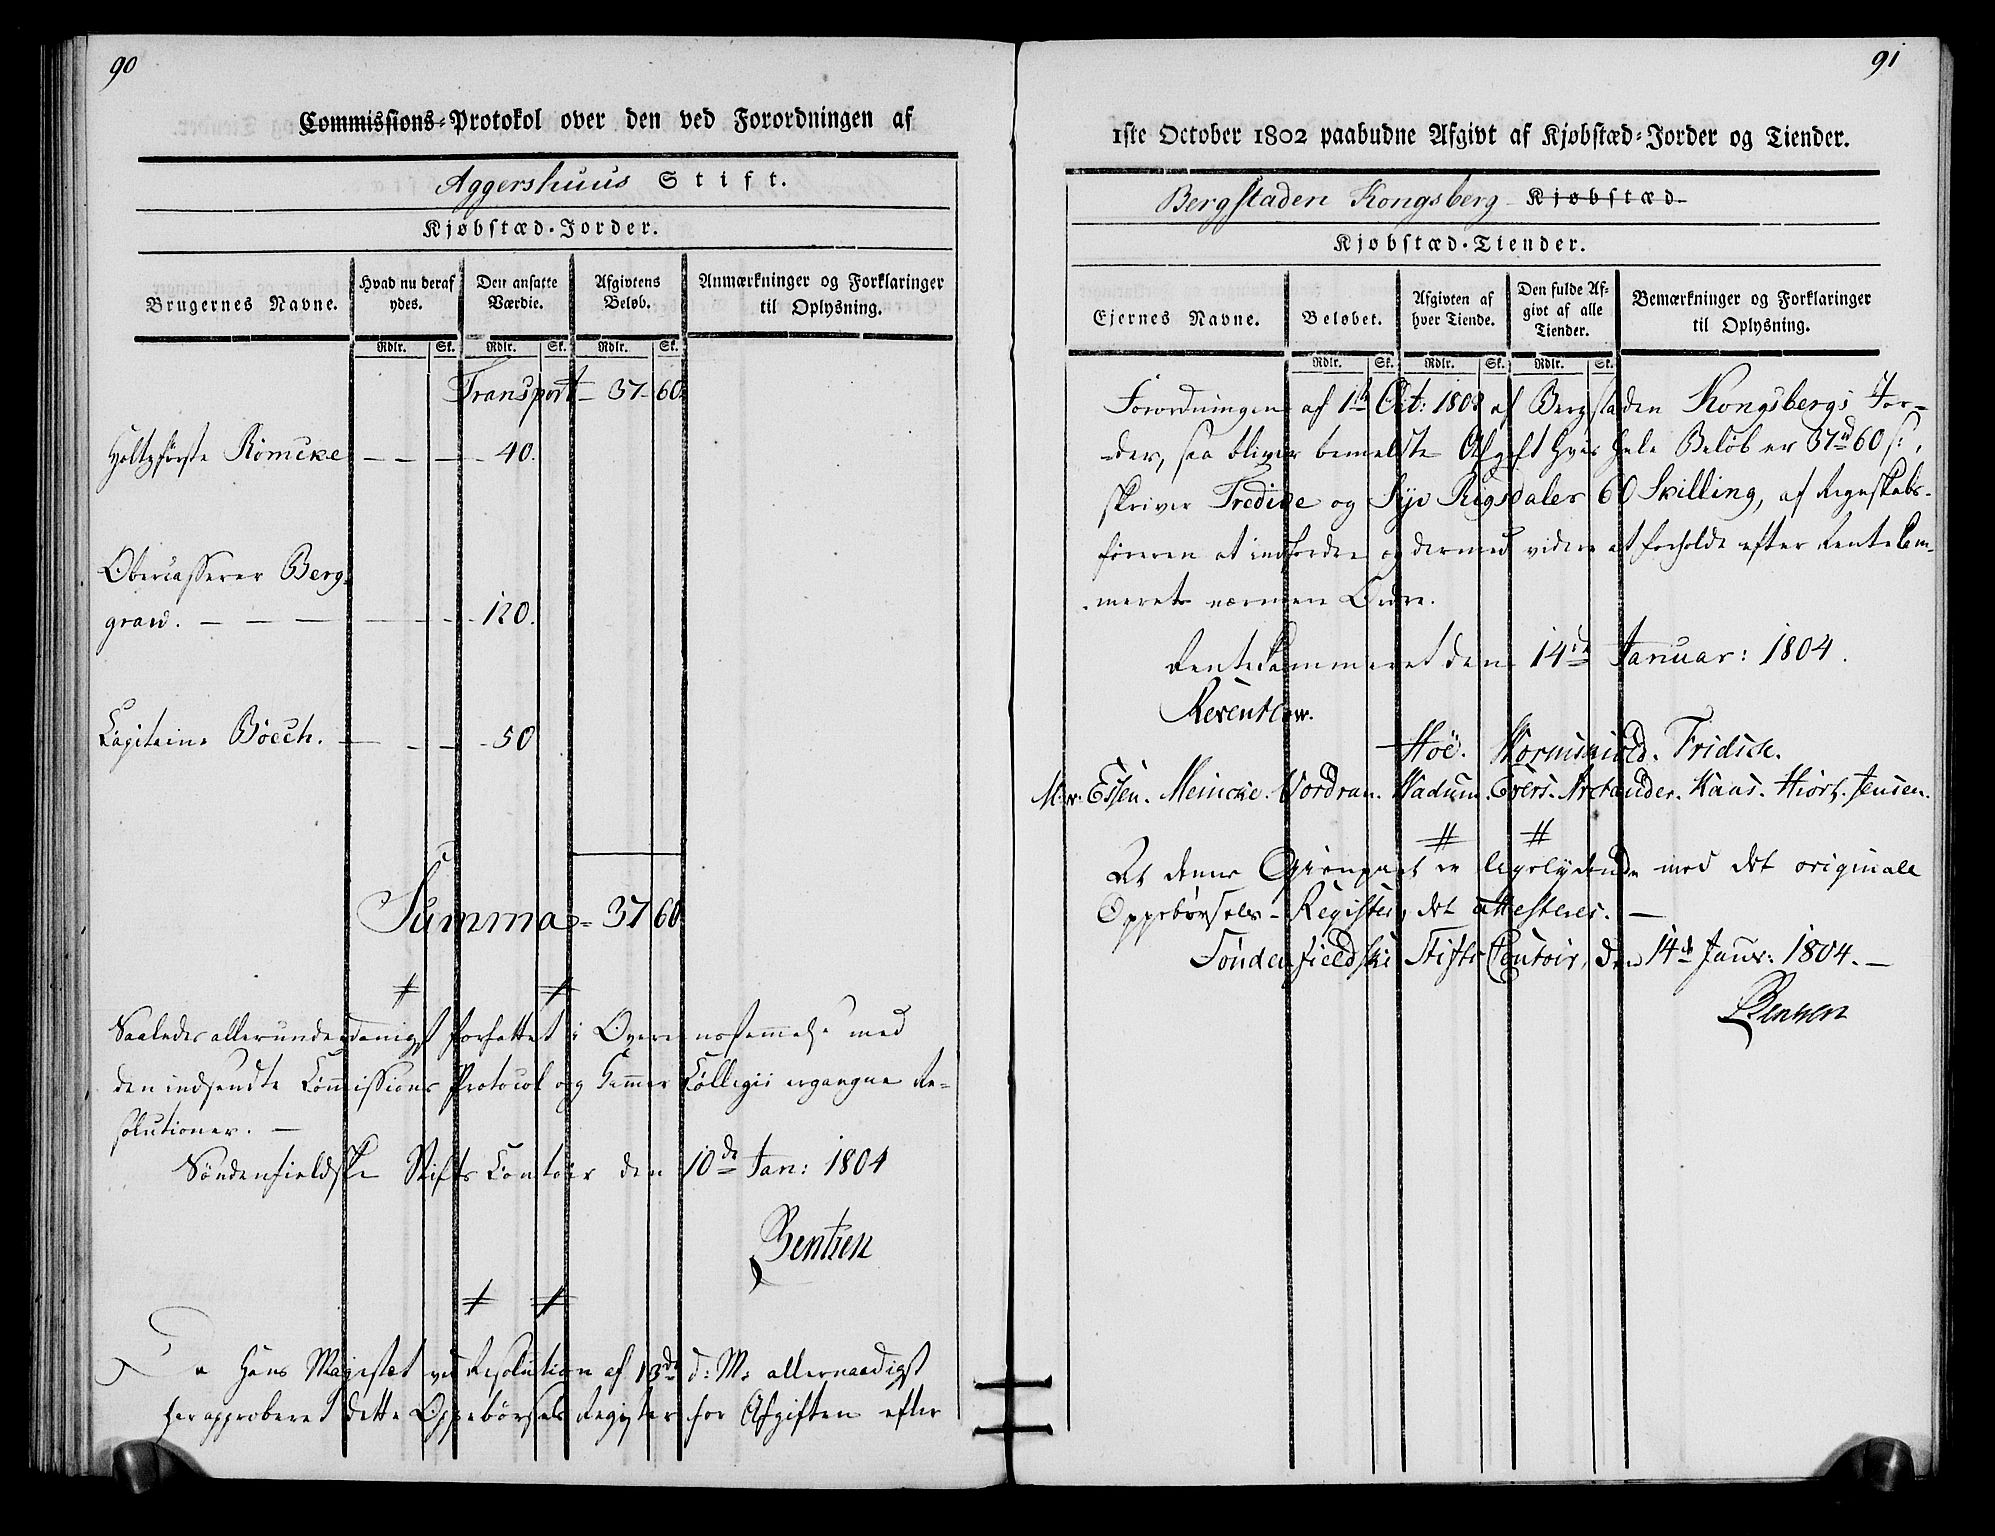 90
Commissions-Protokol over den ved Forordningen af
Aggershuus Stift.
Kjøbstæd-Jorder.
Brugernes Navne.
Hvad nu deraf ydes.
Den ansatte Værdie.
Afgivtens Beløb.
Anmærkninger og Forklaringer til Oplysning.
Rdlr. Sk. Rdlr. Sk. Rdlr. Sk.
Transport - 37 - 60.
Holtzförste Römcke - - - - 40.
Obercasserer Berg-
grav. - - - - - - 120.
Capitaine Böech. - - - - 50
Summa - 37 60
Saaledes allerunderdanigst forfattet i Overensstemmelse med
den indsendte Commissions Protocol og Cammer Collegii ergangne Re-
solutioner. -
Søndenfieldske Stifts Contoir den 10de Jan: 1804
Bentzen
Da Hans Majestæt ved Resolution af 13de d: M: allernaadigst
har approberet dette Oppebørsels Register for Afgiften efter
91
1ste October 1802 paabudne Afgivt af Kjøbstæd-Jorder og Tiender.
Bergstaden Kongsberg Kjøbstæd
Kjøbstæd-Tiender.
Ejernes Navne.
Beløbet.
Afgivten af hver Tiende.
Den fulde Afgivt af alle Tiender.
Bemærkninger og Forklaringer til Oplysning.
Rdlr. Sk. Rdlr. Sk. Rdlr. Sk.
Forordningen af 1ste Oct: 1802 af Bergstaden Kongsbergs Jor-
der, saa bliver bemeldte Afgift hvis hele Beløb er 37rd 60 s:,
skriver Tredive og Syv Rigsdaler 60 Skilling, af Regnskabs-
føreren at indfordre og dermed videre at forholde efter Rentekam-
merets nærmere Ordre.
Rentekammeret den 14de Januar: 1804.
Reventlow.
Hoë. Wormskiold. Fridsch.
Essen. Meincke. Vordran. Wadum. Evers. Arctander. Kaas. Hiort. Jensen.
At denne Gienpart er ligelydende med det originale
Oppebørsels-Register, det attesteres. -
Søndenfieldske Stifts Contoir, den 14de Janr: 1804. -
Bentzen